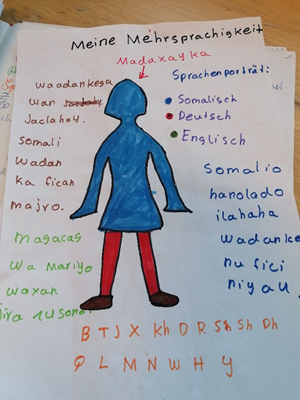 Meine Mehrsprachigkeit
Madaxayka
Sprachenporträt:
Somalisch
Deutsch
Englisch
waadankega
wan
Jaclahay.
somali
wadan
ka fican
majro.
magacas
wa Mariyo
waxan
Somalio
hanolado
ilahaha
wadanke
nu fici
niyau.
B T J X Kh D R S Sh Dh
Q L M N W H Y